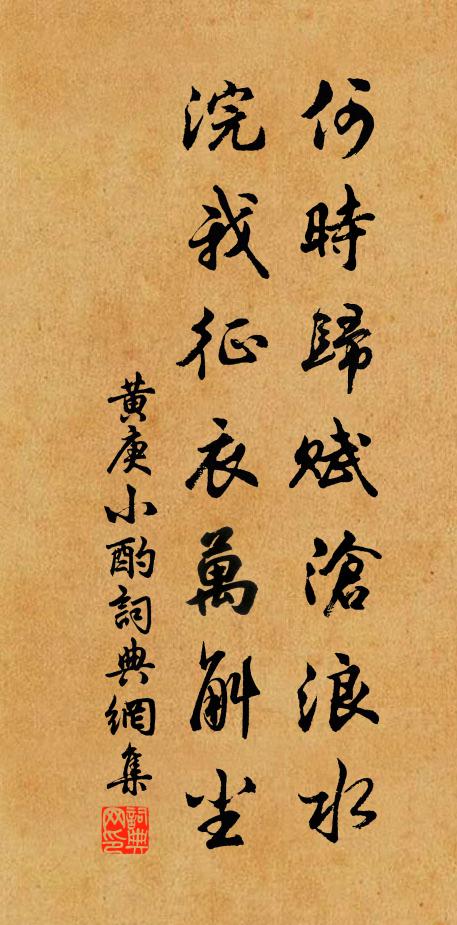 何時歸賦滄浪水
浣我征衣萬斛尘
黄庚小酌詞典網集
詞典网印